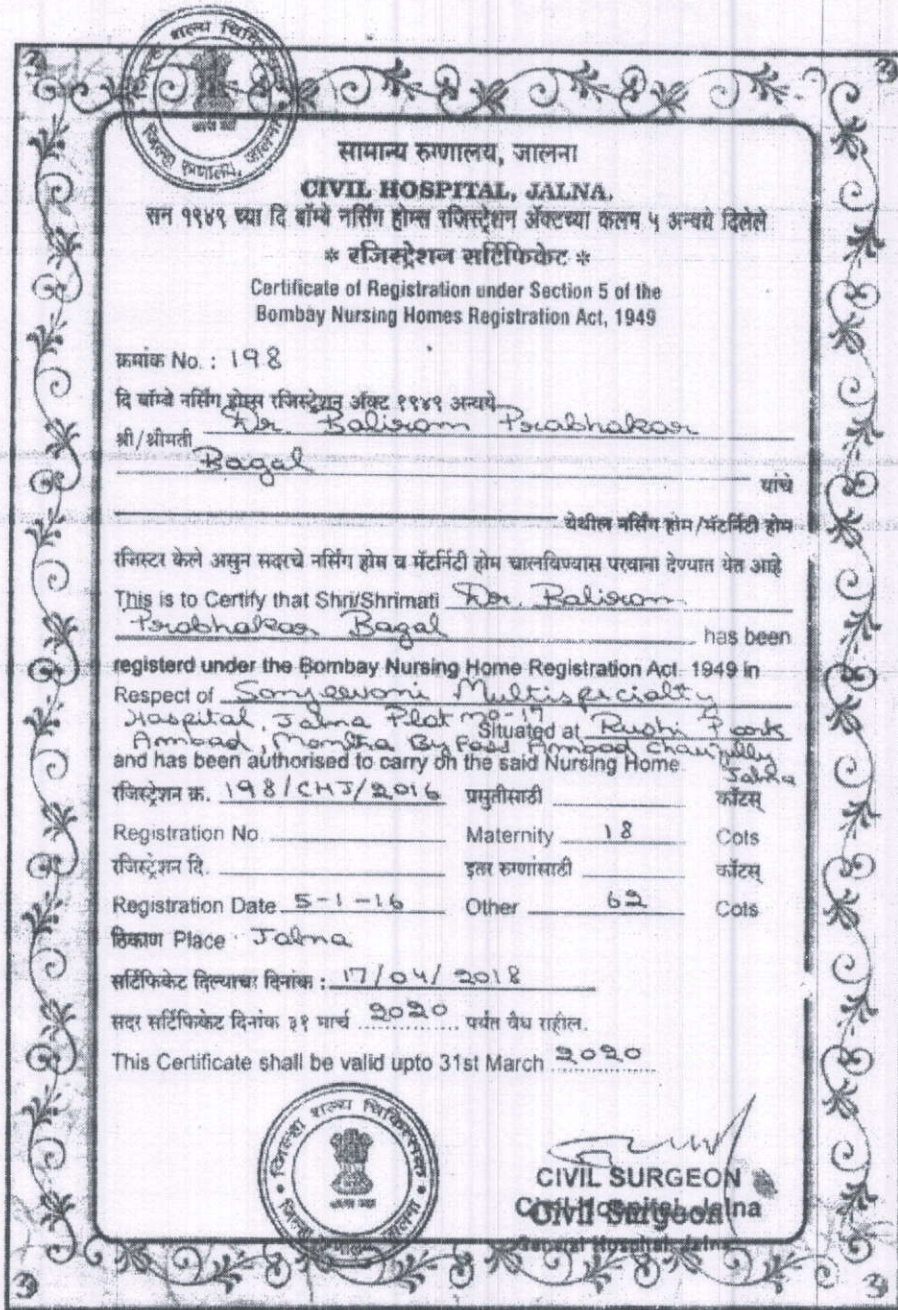 जिल्हा शल्य चिकित्सक
जिल्हा रुग्णालय, जालना
सामान्य रुग्णालय, जालना
CIVIL HOSPITAL, JALNA.
सन १९४९ च्या दि बॉम्बे नर्सिंग होम्स रजिस्ट्रेशन ॲक्टच्या कलम ५ अन्वये दिलेले
* रजिस्ट्रेशन सर्टिफिकेट *
Certificate of Registration under Section 5 of the
Bombay Nursing Homes Registration Act, 1949
क्रमांक No. : 198
दि बॉम्बे नर्सिंग होम्स रजिस्ट्रेशन ॲक्ट १९४९ अन्वये
श्री/श्रीमती Dr. Baliram Prabhakar
Bagal
यांचे
येथील नर्सिंग होम/मॅटर्निटी होम
रजिस्टर केले असुन सदरचे नर्सिंग होम व मॅटर्निटी होम चालविण्यास परवाना देण्यात येत आहे
This is to Certify that Shri/Shrimati Dr. Baliram
Prabhakar Bagal has been
registerd under the Bombay Nursing Home Registration Act 1949 in
Respect of Sanjeevani Multispecialty
Hospital, Jalna Plot no-17 Situated at Rushi Park
Ambad, Mantha By Pass Ambad Chaufully Jalna
and has been authorised to carry on the said Nursing Home.
रजिस्ट्रेशन क्र. 198/CHJ/2016 प्रसुतीसाठी कॉटस्
Registration No. Maternity 18 Cots
रजिस्ट्रेशन दि. इतर रुग्णांसाठी कॉटस्
Registration Date 5-1-16 Other 62 Cots
ठिकाण Place Jalna
सर्टिफिकेट दिल्याचा दिनांक : 17/04/2018
सदर सर्टिफिकेट दिनांक ३१ मार्च 2020 पर्यंत वैध राहील.
This Certificate shall be valid upto 31st March 2020
जिल्हा शल्य चिकित्सक
जिल्हा रुग्णालय, जालना
CIVIL SURGEON
Civil Hospital Jalna
Civil Surgeon
General Hospital, Jalna